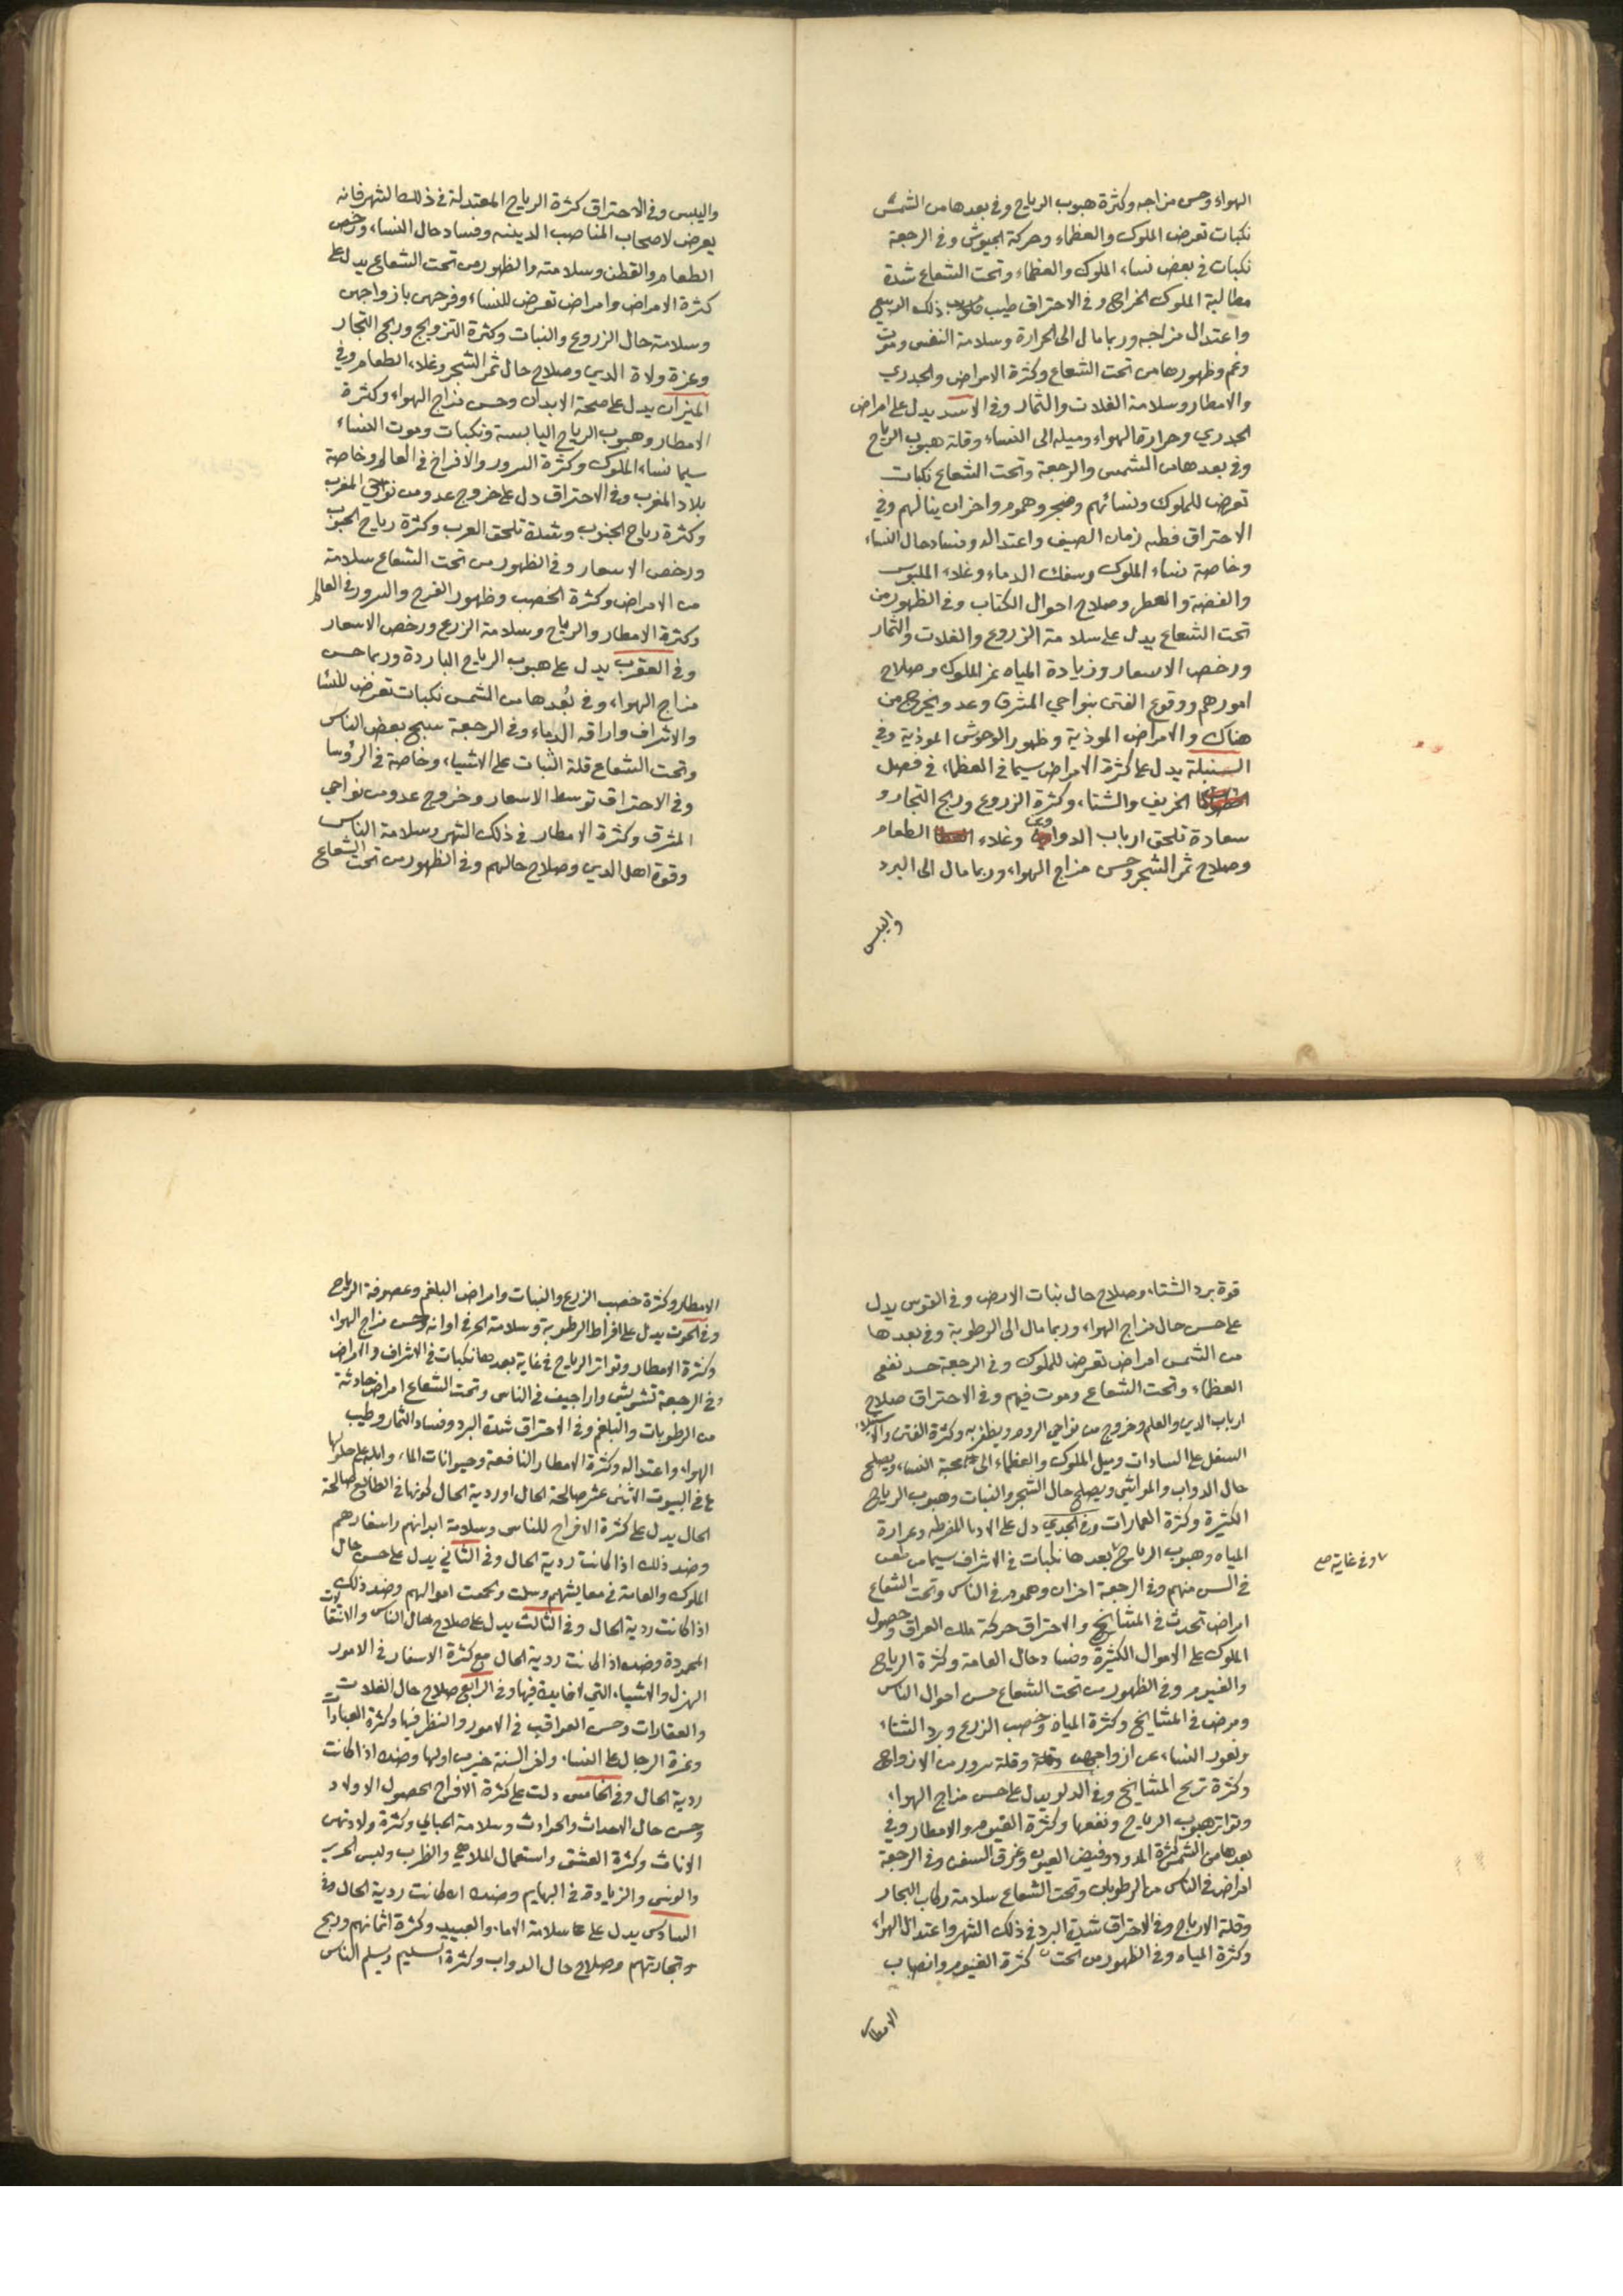 الهواء وحسن مزاجه وكثرة هبوب الرياح وفي بعدها من الشمس
نكبات تعرض الملوك والعظماء وحركة الجيوش وفي الرجعة
نكبات في بعض نساء الملوك والعظماء وتحت الشعاع شدة
مطالبة الملوك الخراج وفي الاحتراق طيب ذلك الربيع
واعتدال مزاجه وربما مال الى الحرارة وسلامة النفس وموت
وغم وظهورها من تحت الشعاع وكثرة الامراض والجدري
والامطار وسلامة الغلات والثمار وفي الاسد يدل على امراض
الجدري وحرارة الهواء وميله الى النساء وقلة هبوب الرياح
وفي بعدها من الشمس والرجعة وتحت الشعاع نكبات
تعرض للملوك ونسائهم وضجر وهموم واحزان ينالهم وفي
الاحتراق زمان الصيف واعتداله وفساد حال النساء
وخاصة نساء الملوك وسفك الدماء وغلاء الملبوس
والفضة والعطر وصلاح احوال الكتاب وفي الظهور من
تحت الشعاع يدل على سلامة الزروع والغلات والثمار
ورخص الاسعار وزيادة المياه عز الملوك وصلاح
امورهم ووقوع الفتن بنواحي المشرق وعدو يخرج من
هناك والامراض الموذية وظهور الوحوش الموذية وفي
السنبلة يدل على كثرة الامراض سيما في العظماء في فصل
الخريف والشتاء وكثرة الزروع وربح التجار و
سعادة تلحق ارباب الدواوين وغلاء الطعام
وصلاح ثمر الشجر وحسن مزاج الهواء وربما مال الى البرد
واليبس
واليبس وفي الاحتراق كثرة الرياح المعتدلة في ذلك الشهر فانه
يعرض لاصحاب المناصب الدينيه وفساد حال النساء ورخص
الطعام والقطن وسلامته والظهور من تحت الشعاع يدل على
كثرة الامراض وامراض تعرض للنساء وفرحهن بازواجهن
وسلامة حال الزروع والنبات وكثرة التزويج وربح التجار
وعزة ولاة الدين وصلاح حال ثمر الشجر وغلاء الطعام وفي
الميزان يدل على صحة الابدان وحسن مزاج الهواء وكثرة
الامطار وهبوب الرياح اليابسة ونكبات وموت النساء
سيما نساء الملوك وكثرة السرور والافراح في العالم وخاصة
بلاد المغرب وفي الاحتراق دل على خروج عدو من نواحي المغرب
وكثرة رياح الجنوب وشدة تلحق العرب وكثرة رياح الجنوب
ورخص الاسعار وفي الظهور من تحت الشعاع سلامة
من الامراض وكثرة الخصب وظهور الفرح والسرور في العالم
وكثرة الامطار والرياح وسلامة الزرع ورخص الاسعار
وفي العقرب يدل على هبوب الرياح الباردة وربما حسن
مزاج الهواء وفي بُعدها من الشمس نكبات تعرض للنسا
والاشراف واراقه الدماء وفي الرجعة بعض الناس
وتحت الشعاع قلة الثبات على الاشياء وخاصة في الرؤسا
وفي الاحتراق توسط الاسعار وخروج عدو من نواحي
المشرق وكثرة الامطار في ذلك الشهر وسلامة الناس
وقوة اهل الدين وصلاح حالهم وفي الظهور من تحت الشعاع
قوة برد الشتاء وصلاح حال نبات الارض وفي القوس يدل
على حسن حال مزاج الهواء وربما مال الى الرطوبة وفي بعدها
من الشمس امراض تعرض للملوك وفي الرجعة
العظماء وتحت الشعاع وموت فيهم وفي الاحتراق صلاح
ارباب الدين والعلم وخروج من نواحي الروم ويظفر به وكثرة الفتن
السفل على السادات وميل الملوك والعظماء الى محبة النساء ويصلح
حال الدواب والمراثي ويصلح حال الشجر والنبات وهبوب الرياح
الكثيرة وكثرة العمارات وفي الجدي دل على المفرطه وغزارة
المياه وهبوب الرياح بعدها نكبات في الاشراف سيما من
في السن منهم وفي الرجعة احزان وهموم في الناس وتحت الشعاع
وفي غاية صح
امراض تحدث في المشايخ والاحتراق حركة ملك العراق وحصول
الملوك على الاموال الكثيرة وفساد حال العامة وكثرة الرياح
والغيوم وفي الظهور من تحت الشعاع حسن احوال الناس
ومرض في المشايخ وكثرة المياه وخصب الزرع وبرد الشتاء
ونفور النساء عن ازواجهن وقلة سرور من الازواج
وكثرة تزيج المشايخ وفي الدلو يدل على حسن مزاج الهواء
وتواتر هبوب الرياح ونفعها وكثرة الغيوم والامطار وفي
بعدها من الشمس كثرة المدود وفيض العيون وغرق السفن وفي الرجعة
امراض في الناس من الرطوبات وتحت الشعاع سلامة ركاب البحار
وقلة الارباح وفي الاحتراق شدة البرد في ذلك الشهر واعتدال الهواء
وكثرة المياه وفي الظهور من تحت كثرة الغيوم وانصباب
الامطار
الامطار وكثرة خصب الزرع والنبات وامراض البلغم وعصوفة الرياح
وفي الحوت يدل على افراط الرطوبة وسلامة الحر في اوانه وحسن مزاج الهواء
وكثرة الامطار وتواتر الرياح في غاية بعدها نكبات في الاشراف والامراض
وفي الرجعة تشويش واراجيف في الناس وتحت الشعاع امراض حادثة
من الرطوبات والبلغم وفي الاحتراق شدة البرد وفساد الثمار وطيب
الهواء واعتداله وكثرة الامطار النافعة وحيوانات الماء والله اعلم حلولها
في البيوت الاثنى عشر صالحة الحال او ردية الحال كونها في الطالع صالحة
الحال يدل على كثرة الافراح للناس وسلامة ابدانهم واسفارهم
وضد ذلك اذا كانت ردية الحال وفي الثاني يدل على حسن حال
الملوك والعامة في معايشهم وسلت ونمت اموالهم وضد ذلك
اذا كانت ردية الحال وفي الثالث يدل على صلاح حال الناس والانتقالات
المحمودة وضده اذا كانت ردية الحال مع كثرة الاسفار في الامور
الهزل والاشياء التي لا فايدة فيها وفي الرابع صلاح حال الغلات
والعقارات وحسن العواقب في الامور والنظر فيها وكثرة العبادات
وعزة الرجال على النساء واخر السنة خير من اولها وضده اذا كانت
ردية الحال وفي الخامس دلت على كثرة الافراح بحصول الاولاد
وحسن حال الاحداث والحوادث وسلامة الحبالي وكثرة ولادتهن
الاناث وكثرة العشق واستعمال الملاهي والطرب ولبس الحرير
والوشي والزيادة في البهايم وضده ان كانت ردية الحال وفي
السادس يدل على سلامة الاماء والعبيد وكثرة اثمانهم وربح
وتجارتهم وصلاح حال الدواب وكثرة ويسلم الناس